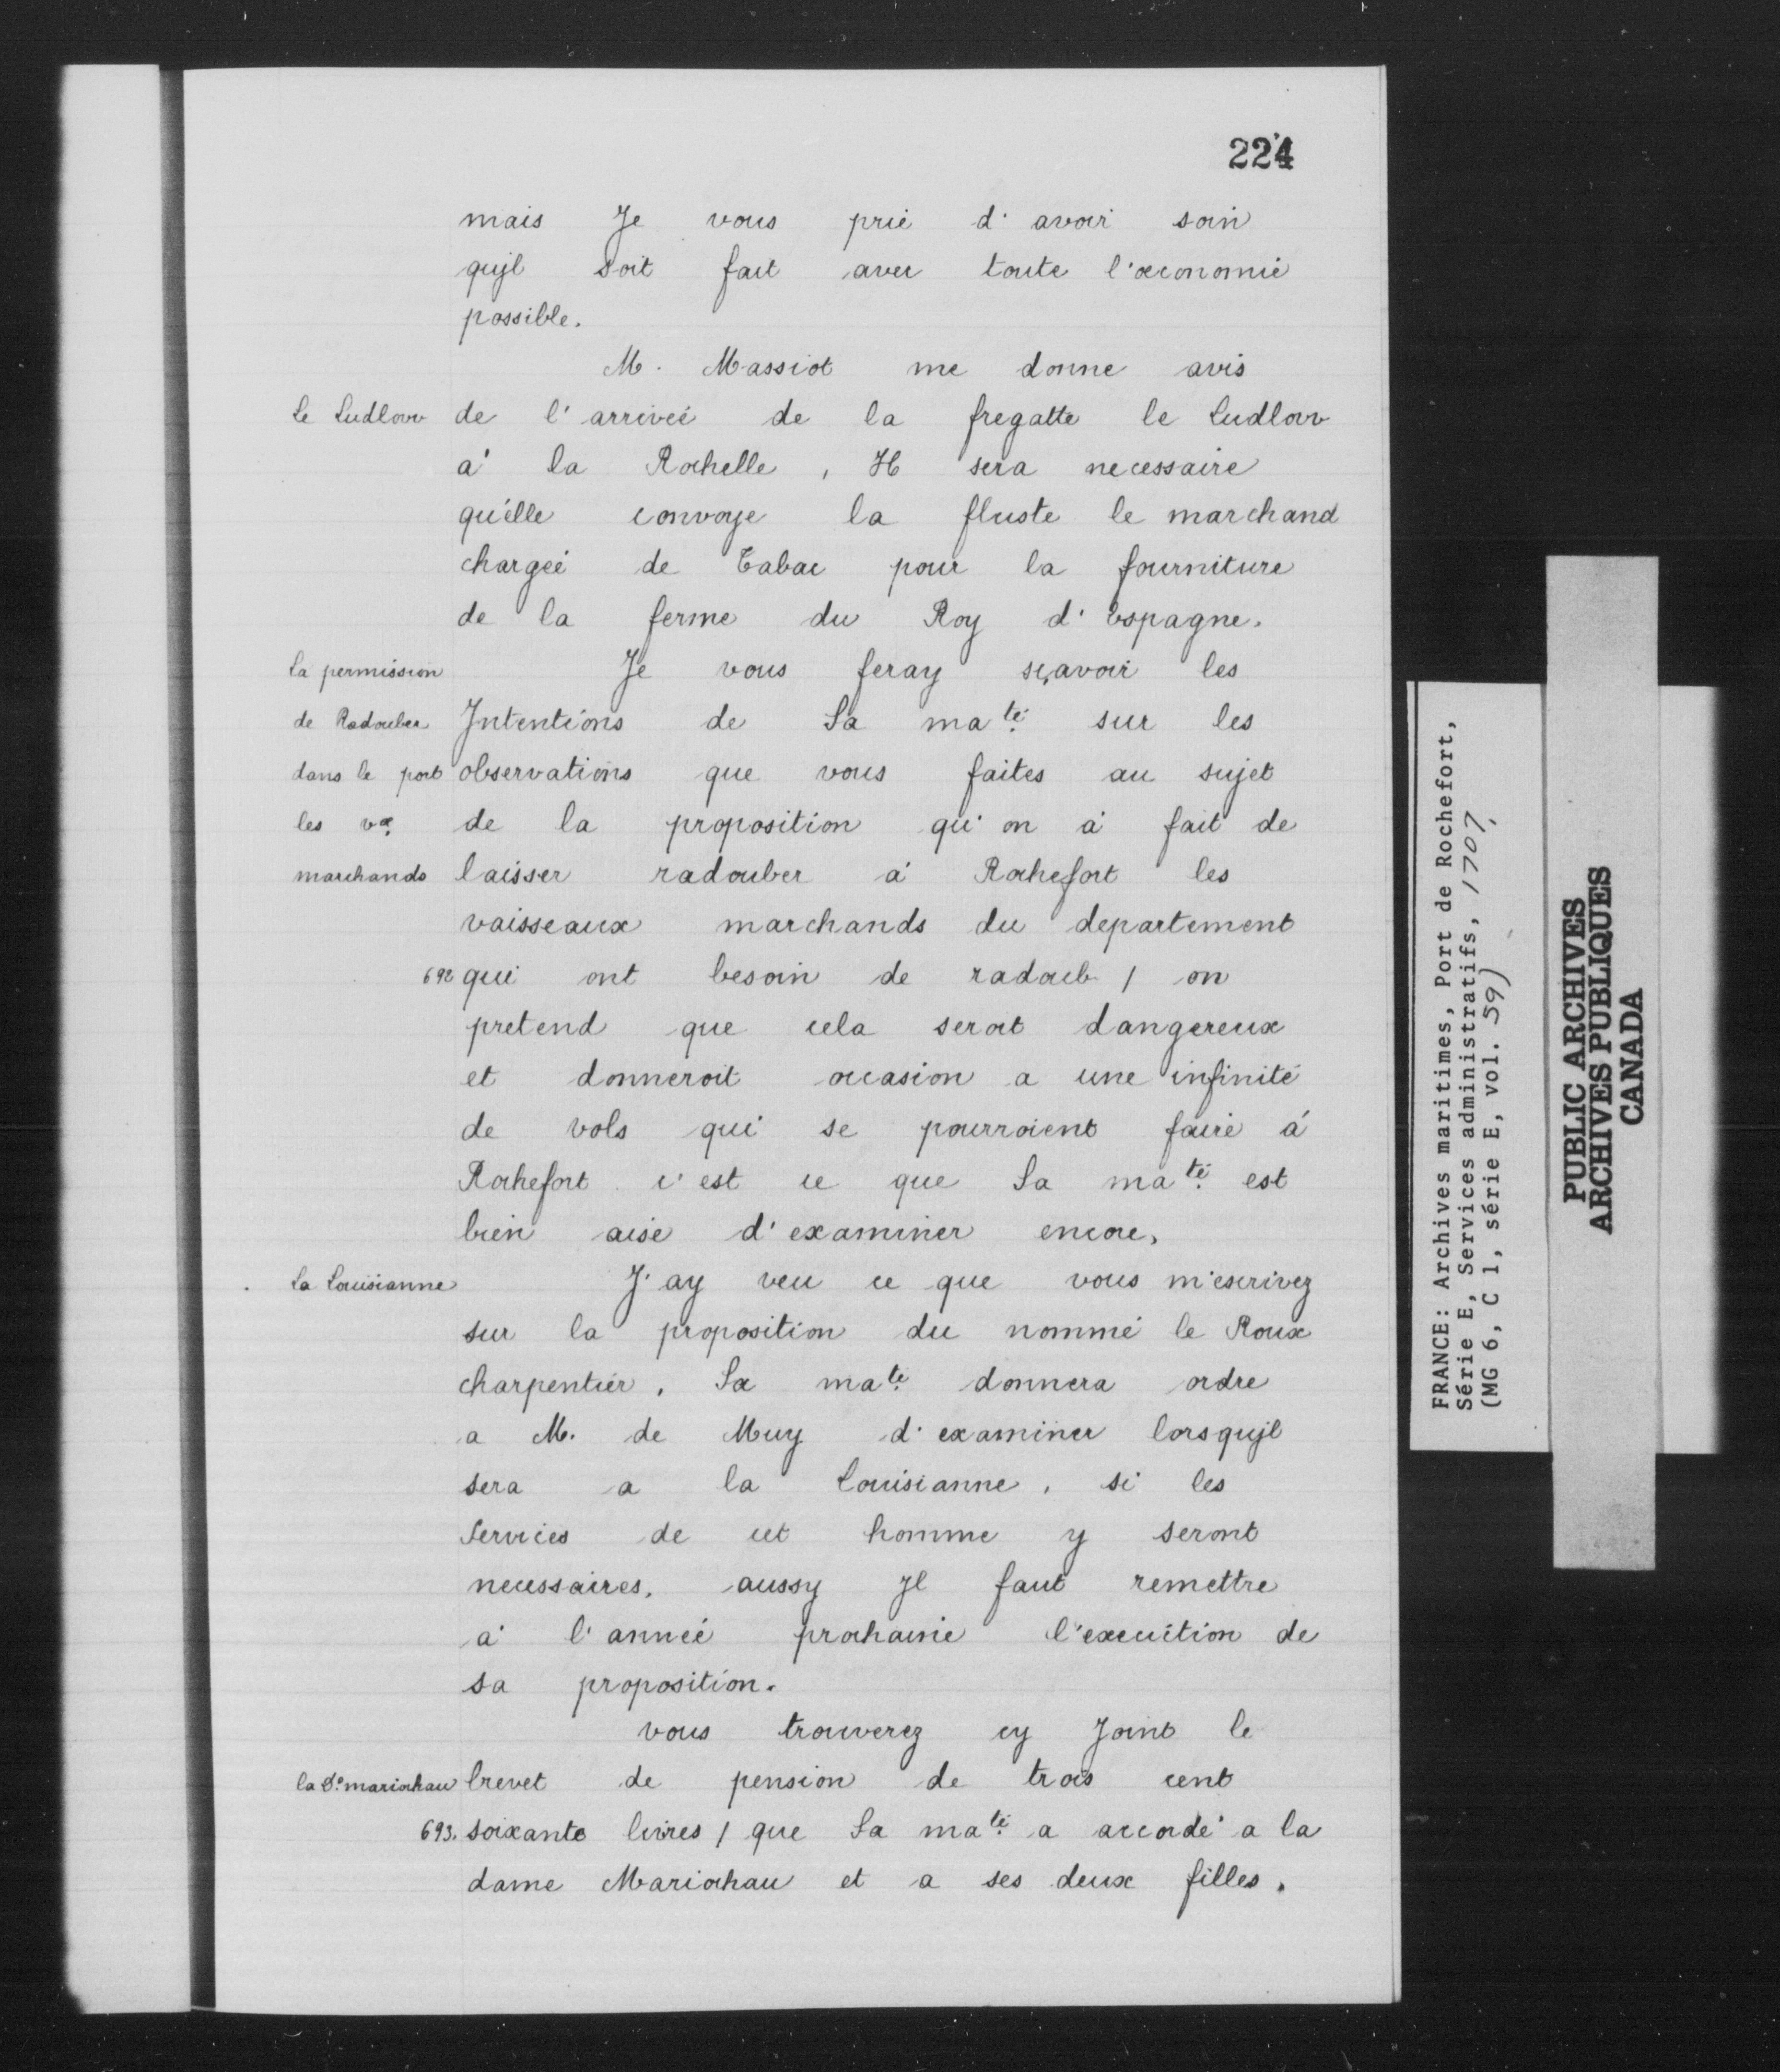 224
mais Je vous prie d'avoir soin
qujl soit fait avec toute l'œconomie
possible.
M. Massiot me donne avis
Le Ludlow de l'arriveé de la fregatte le Ludlow
a' la Rochelle, Il sera necessaire
qu'elle convoye la fluste le marchand
chargeé de Tabac pour la fourniture
de la ferme du Roy d'Espagne.
La permission Je vous feray sçavoir les
de Radouber Intentions de Sa ma.té sur les
dans le port observations que vous faites au sujet
les vx. de la proposition qu'on a' fait de
marchands laisser radouber a' Rochefort les
vaisseaux marchands du departement
692 qui ont besoin de radoub / on
pretend que cela seroit dangereux
et donneroit occasion a une infinité
de vols qui se pourroient faire á
Rochefort c'est ce que Sa ma.té est
bien aise d'examiner encore,
La Louisianne J'ay veu ce que vous m'escrivez
sur la proposition du nommé le Roux
charpentier. Sa ma.té donnera ordre
a M. de Muy d'examiner lorsqujl
sera a la Louisianne, si les
Services de cet homme y seront
necessaires, aussy Jl faut remettre
a' l'anneé prochaine l'execution de
sa proposition.
vous trouverez cy Joint le
la De. mariochau brevet de pension de trois cent
693. soixante livres / que Sa ma.té a accordé a la
dame Mariochau et a ses deux filles.
FRANCE: Archives maritimes, Port de Rochefort,
Série E, Services administratifs, 1707,
(MG 6, C 1, série E, vol. 59)
PUBLIC ARCHIVES
ARCHIVES PUBLIQUES
CANADA